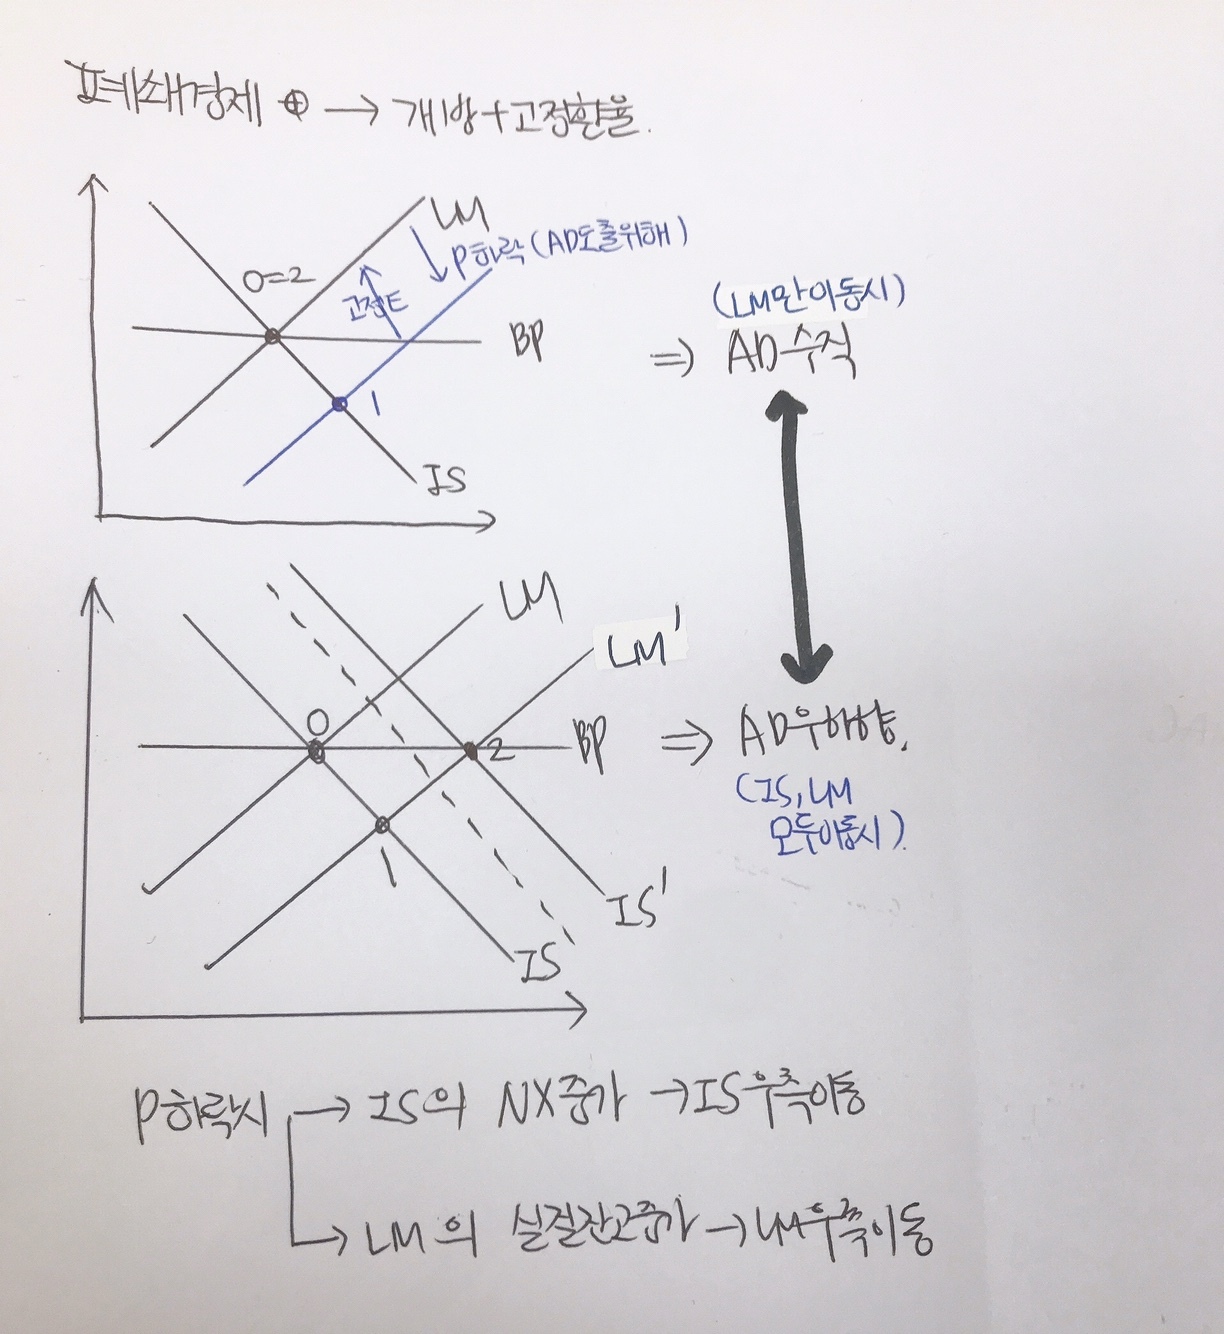 폐쇄경제 ⊕ → 개방+고정환율.
LM
P하락 (AD도출위해)
0=2
고정E
BP
1
IS
(LM만이동시)
⇒ AD수직
LM
LM'
0
2
BP
1
IS'
IS
⇒ AD우하향.
(IS, LM
모두이동시).
P하락시 → IS의 NX증가 → IS우측이동
→ LM의 실질잔고증가 → LM우측이동